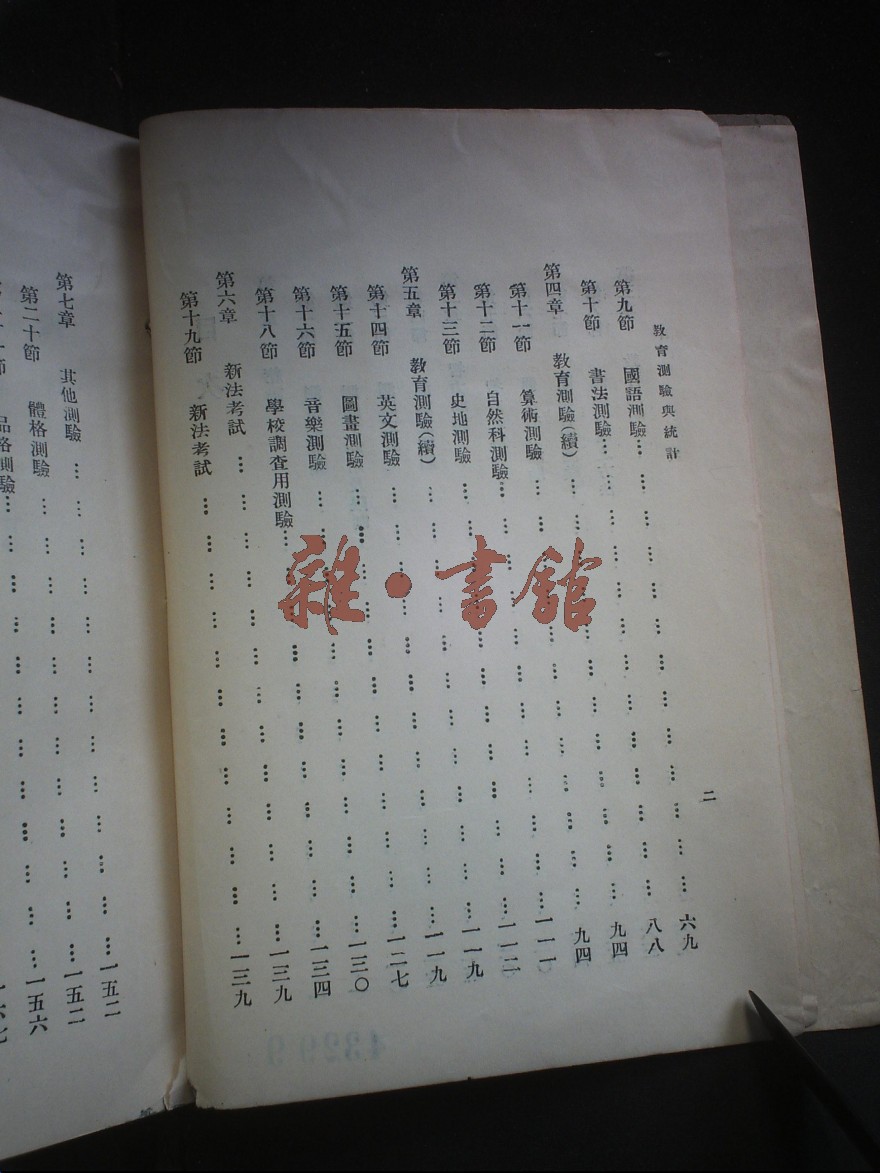 教育測驗與統計
二
第九節 國語測驗……六九
第十節 書法測驗……八八
第四章 教育測驗(續)……九四
第十一節 算術測驗……九四
第十二節 自然科測驗……一一〇
第十三節 史地測驗……一一二
第五章 教育測驗(續)……一一九
第十四節 英文測驗……一一九
第十五節 圖畫測驗……一二七
第十六節 音樂測驗……一三〇
第十八節 學校調查用測驗……一三四
第六章 新法考試……一三九
第十九節 新法考試……一三九
第七章 其他測驗……一五二
第二十節 體格測驗……一五二
品格測驗……一五六
雜·書館